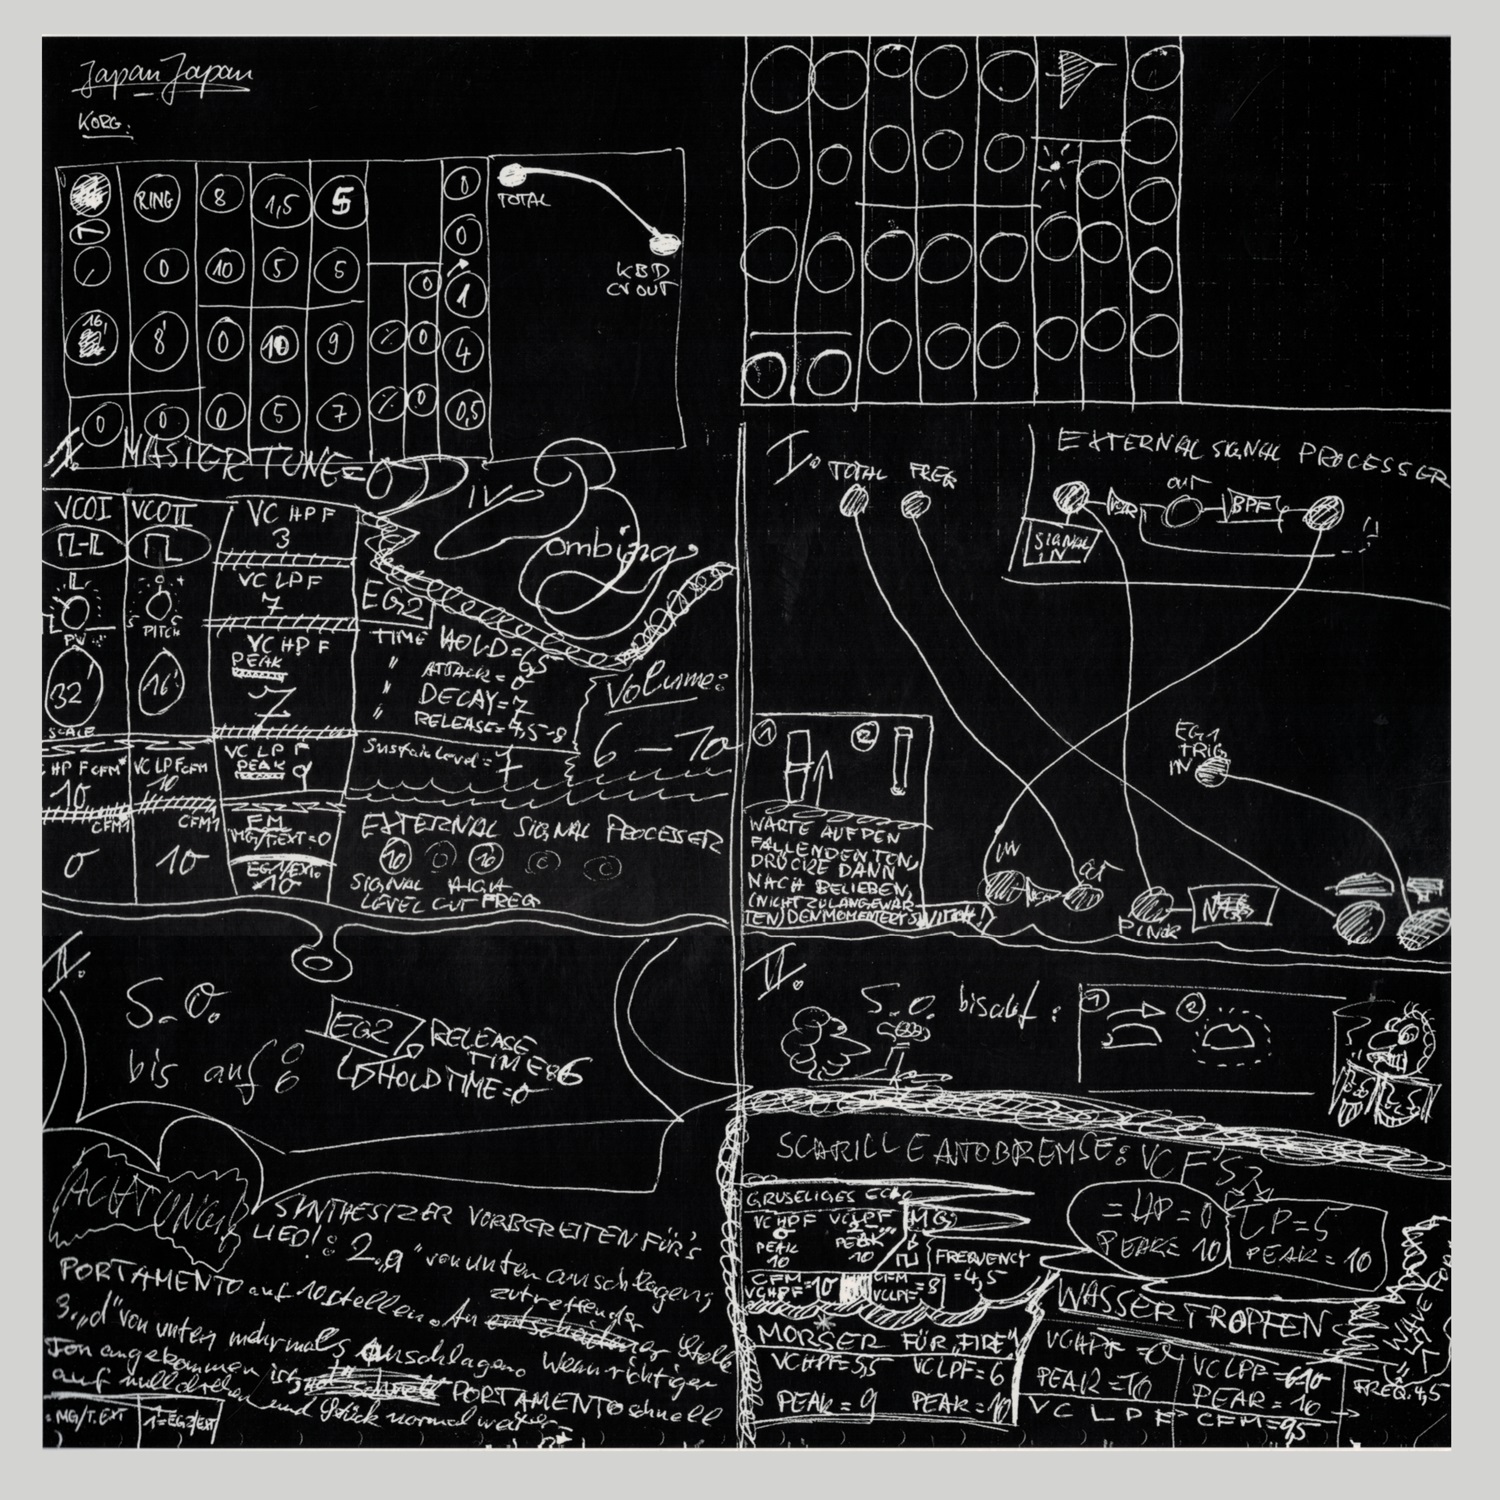 Japan Japan
KORG.
RING 8 1,5 5
0 10 5 5 0
0
0
1
16' 8' 0 10 9 % 0 4
0 0 0 5 7 % 0 0,5
TOTAL
KBD
CV OUT
I. MASTERTUNE=0
VCO I
VCO II
PW
PITCH
32'
16'
SCALE
VC HPF
3
VC LPF
7
VC HPF
PEAK
7
VC LPF
PEAK 9
HPF CFM
10
VC LPF CFM
10
CFM1
0
CFM1
10
FM
MG/T.EXT=0
EG1/EXT=
10
IV
ombing
EG2
TIME HOLD=6,5
" ATTACK=0
" DECAY=7
" RELEASE=4,5-8
Sustainlevel=7
Volume:
6-10
EXTERNAL SIGNAL PROCESSER
10 0 10
SIGNAL HIGH
LEVEL CUT FREQ
II.
S.O.
bis auf:
EG2
RELEASE
TIME=6
HOLDTIME=0
ACHTUNG!!
SYNTHESIZER VORBEREITEN FÜR'S
LIED!: 2. "a" von unten anschlagen;
PORTAMENTO auf 10 stellen. An zutreffender Stelle
3. "d" von unten mehrmals anschlagen. Wenn richtiger
Ton angekommen ist, PORTAMENTO schnell
auf null drehen und Stück normal weiter
=MG/T.EXT
1=EG2/EXT
I.
TOTAL FREQ
EXTERNAL SIGNAL PROCESSER
OUT
BPF
SIGNAL
IN
EG1
TRIG
IN
1 2
WARTE AUF DEN
FALLENDEN TON,
DRÜCKE DANN
NACH BELIEBEN,
(NICHT ZU LANGE WAR-
TEN) DEN MOMENTERY SWITCH!
IN
OUT
II.
S.O. bis auf:
1 2
SCHRILLE AUTOBREMSE: VCF'S
=HP=0
PEAK=10
LP=5
PEAK=10
GRUSELIGES ECHO
VCHPF
0
PEAK
10
VCLPF
PEAK
10
MG:
FREQUENCY
=4,5
CFM
VCHPF=10
CFM
VCLPF=8
MÖRSER FÜR "FIRE"
VCHPF=3,5 VCLPF=6
PEAK=9 PEAK=10
WASSERTROPFEN
VCHPF=0
PEAK=10
VCLPF=
PEAK=10
VCLPF CFM=9,5
FREQ. 4,5